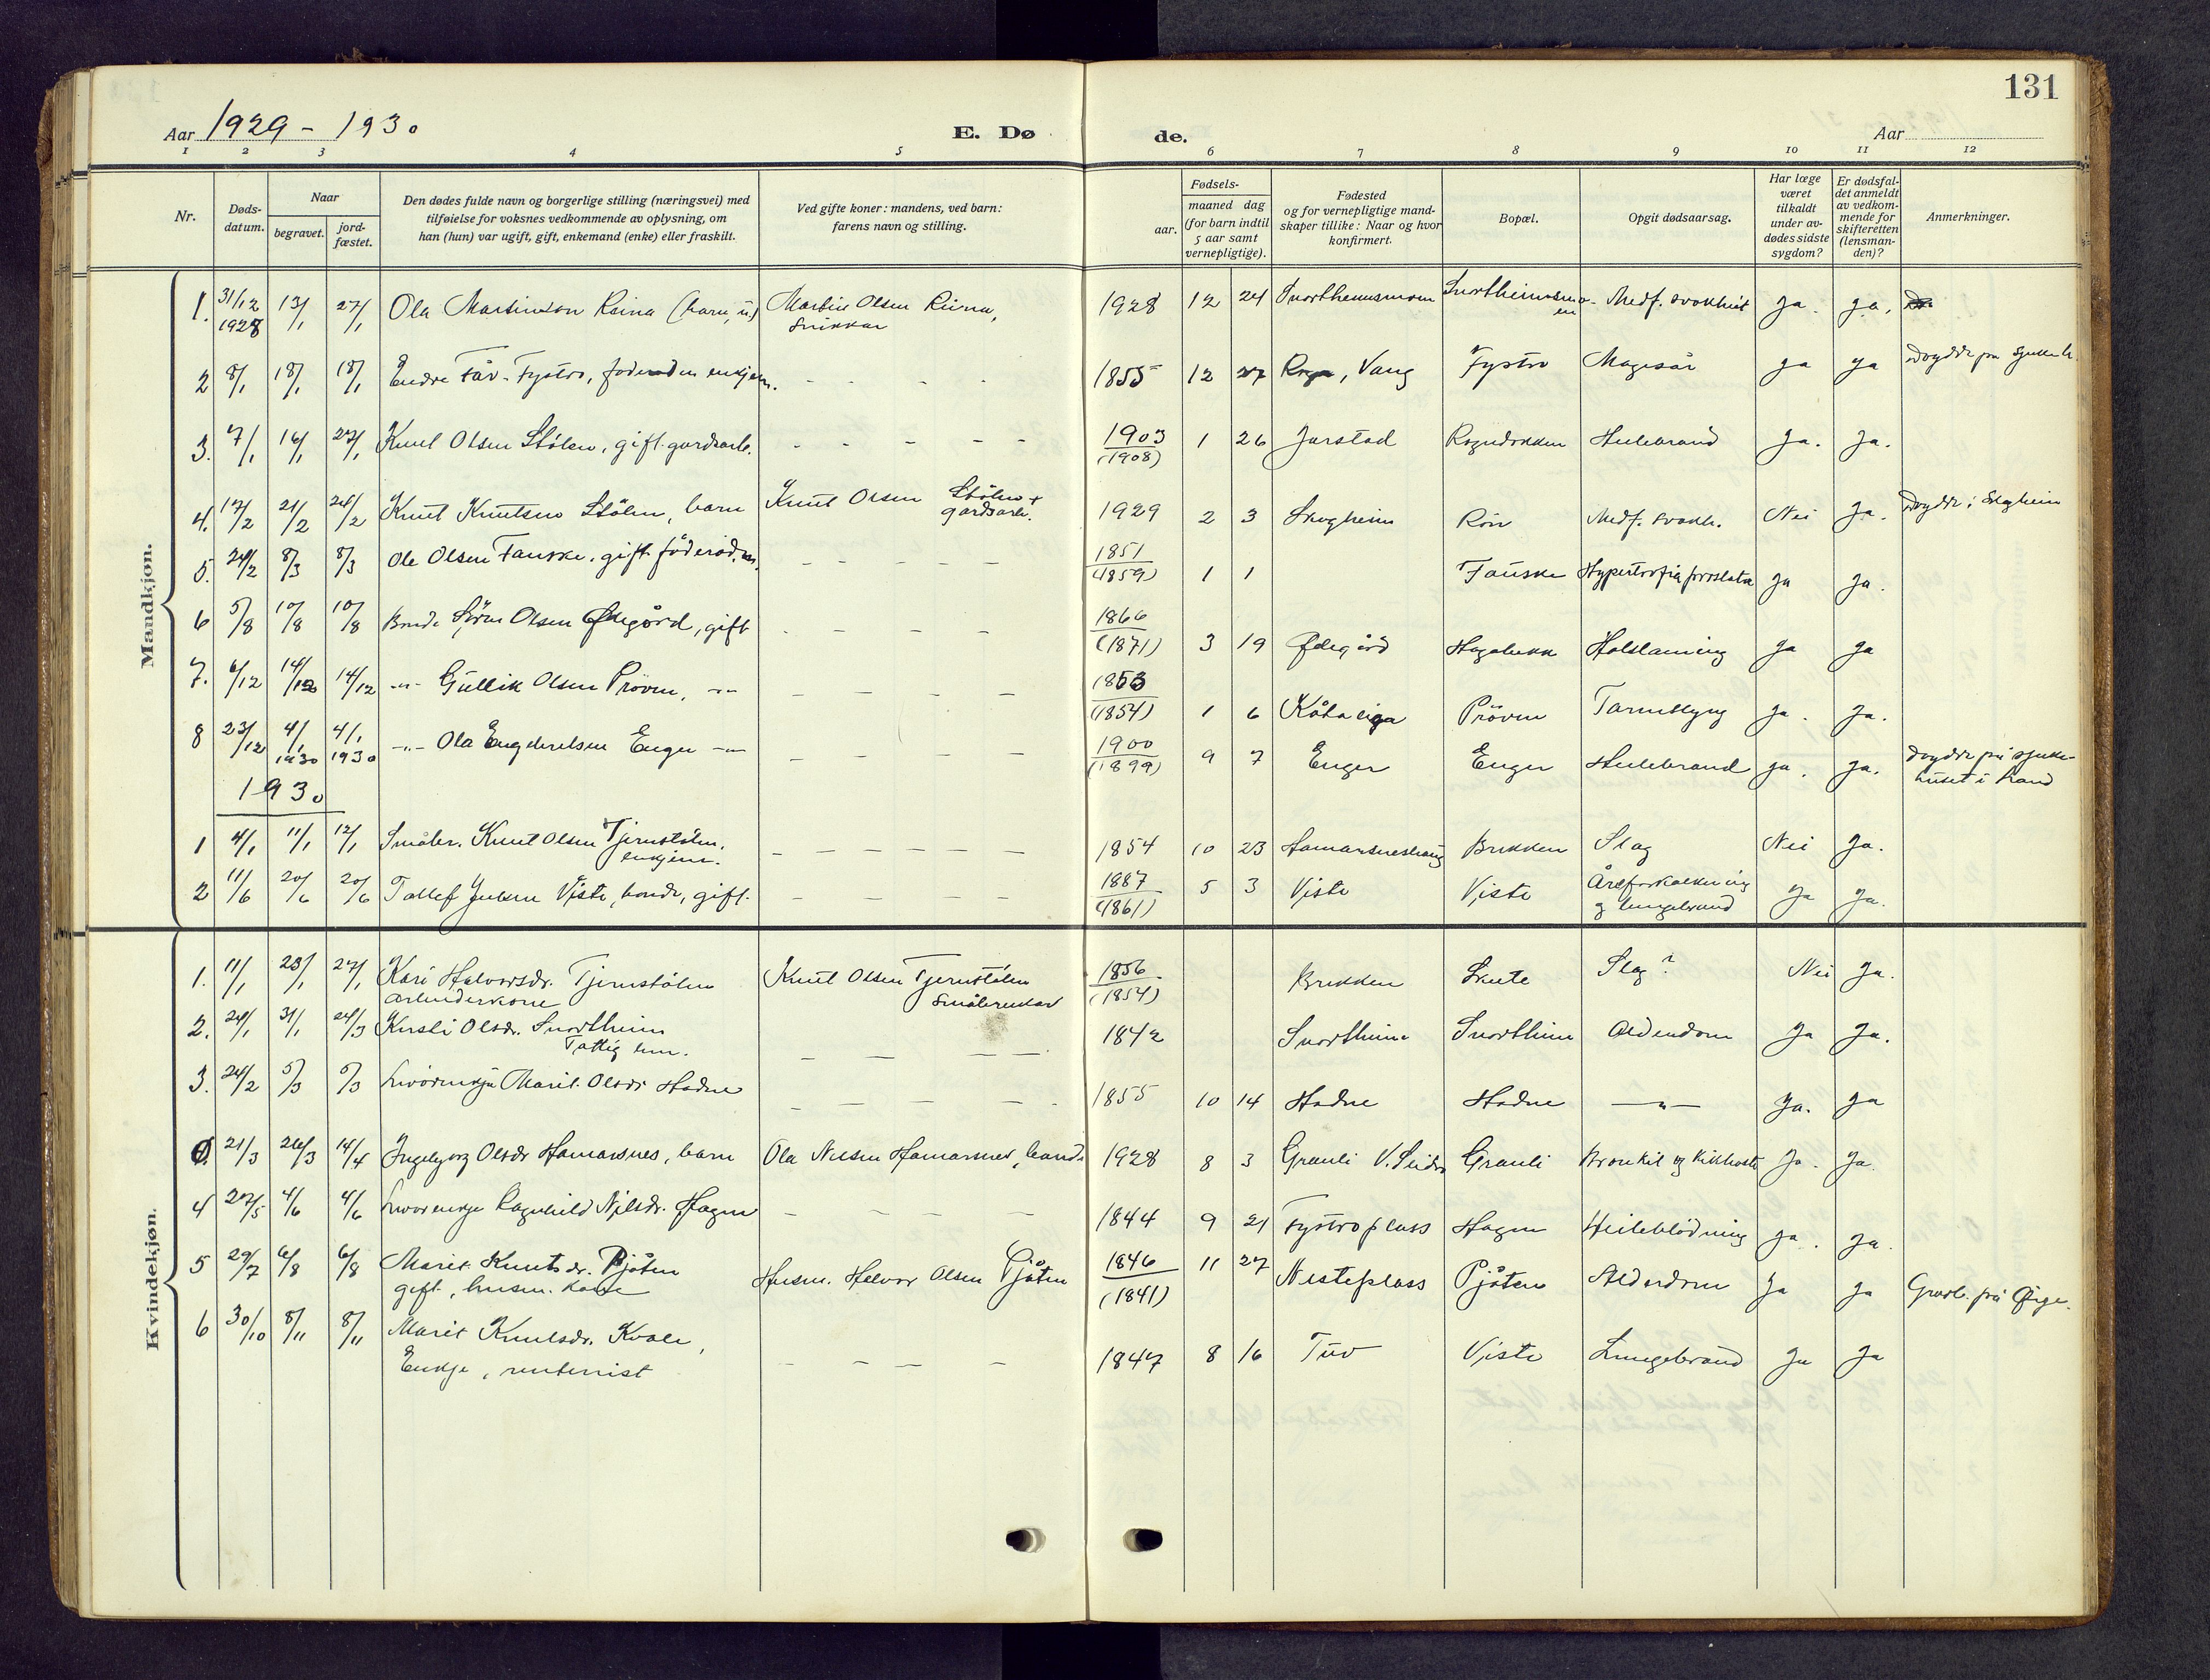 131
Aar 1929 - 1930
E. Dø de.
Aar
1 2 3 4 5 6 7 8 9 10 11 12
Nr.
Døds-datum.
Naar
begravet.
jord-fæstet.
Den dødes fulde navn og borgerlige stilling (næringsvei) med
tilføielse for voksnes vedkommende av oplysning, om
han (hun) var ugift, gift, enkemand (enke) eller fraskilt.
Ved gifte koner: mandens, ved barn:
farens navn og stilling.
Fødsels-
aar.
maaned dag
(for barn indtil
5 aar samt
vernepligtige).
Fødested
og for vernepligtige mand-
skaper tillike: Naar og hvor
konfirmert.
Bopæl.
Opgit dødsaarsag.
Har læge
været
tilkaldt
under av-
dødes sidste
sygdom?
Er dødsfal-
det anmeldt
av vedkom-
mende for
skifteretten
(lensman-
den)?
Anmerkninger.
Mandkjøn.
1. 31/12 1928 13/1 27/1 Ola Martinson Reina (barn, u.) Martin Olsen Reina, Snikkar 1928 12 24 Medf. svakheit Ja. Ja.
2 8/1 18/1 18/1 Endre Fystro, 1855 12 27 Vang Fystro Magesår Ja Ja
3. 7/1 16/1 27/1 Knut Olsen Stølen, gift gardsarb. 1903 (1908) 1 26 Jarstad Heilebrand Ja. Ja.
4. 17/2 21/2 24/2 Knut Knutsen Stølen, barn Knut Olsen Stølen gardsarb. 1929 2 3 Skogheim Røn Medf. svakh. Nei Ja. i Skogheim
5. 24/2 8/3 8/3 Ole Olsen Fauske, gift föderådsm. 1851 (1859) 1 1 Fauske Hypertrofia prostata Ja Ja.
6 5/8 10/8 10/8 Bonde Olsen Ødegård, gift 1866 (1871) 3 19 Ødegård Ja Ja
7. 6/12 14/12 14/12 -"- Gullik Olsen Prøven, -"- 1853 (1854) 1 6 Prøven Tarmslyng Ja. Ja.
8 23/12 4/1 1930 4/1 1930 -"- Ola Engebretsen Enger -"- 1900 (1899) 9 7 Enger Enger Heilebrand Ja. Ja. Døydde på sjuke-
huset i
1930
1 4/1 11/1 12/1 Småbr. Knut Olsen Tjernstølen, enkjem. 1854 10 23 Brekken Slag Nei Ja.
2 11/6 20/6 20/6 Tollef Julisen Viste, bonde, gift. 1887 (1861) 5 3 Viste Viste Åreforkalkning
og lungebrand Ja Ja.
Kvindekjøn.
1. 11/1 23/1 27/1 Kari Halvorsdr. Tjernstølen arbeiderkone Knut Olsen Tjernstølen Småbrukar 1856 (1854) Brekken Skute Slag? Nei Ja.
2. 24/1 31/1 24/3 Kersti Olsdr. Snortheim Fattig lem. 1842 Snortheim Snortheim Alderdom Ja Ja.
3. 24/2 5/3 5/3 Marit Olsdr Hadne 1855 10 14 Hadne Hadne -"- Ja. Ja
21/3 26/3 14/4 Ingebjørg Olsdr Hamarsnes, barn Ola Nilsen Hamarsnes, bonde 1928 8 3 Grauli V. Slidre Grauli Bronkit og Kikhoste Ja. Ja.
4 27/5 4/6 4/6 Ragnhild Nilsdr. Hagen 1844 9 21 Fystroplass Hagen Heileblødning Ja. Ja.
5 29/7 6/8 6/8 Marit Knutsdr. Pjåten gift, husm. kone Husm. Halvor Olsen Pjåten 1846 (1841) 11 27 Nesteplass Pjåten Alderdom Ja Ja Gravl. på Øye.
6 30/10 8/11 8/11 Marit Knutsdr. Kvale, Enkje, rentenist 1847 8 16 Tuv Viste Lungebrand Ja Ja